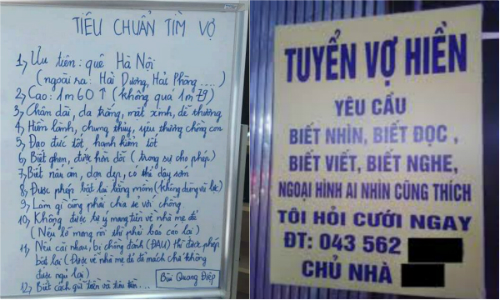 TIÊU CHUẨN TÌM VỢ
1, Ưu tiên: quê Hà Nội
(ngoài ra: Hải Dương, Hải Phòng ...)
2, Cao: 1m60 ↑ (không quá 1m79)
3, Chân dài, da trắng, mắt xinh, dễ thương
4, Hiền lành, chung thủy, yêu thương chồng con
5, Đạo đức tốt, hạnh kiểm tốt
6, Biết ghen, được hờn dỗi (trong sự cho phép)
7, Biết nấu ăn, dọn dẹp, có thể dậy sớm
8, Được phép bật lại bằng mồm (không dùng vũ lực)
9, Làm gì cũng phải chia sẻ với chồng
10, Không được tự ý mang tiền về nhà mẹ đẻ
(Nếu lỡ mang rồi thì phải báo cáo lại)
11, Nếu cãi nhau, bị chồng đánh (ĐAU) thì được phép
bật lại (Được về nhà mẹ đẻ để mách chứ không
được ngủ lại)
12, Biết cách giữ tiền và tiêu tiền...
Bùi Quang Điệp
TUYỂN VỢ HIỀN
YÊU CẦU
BIẾT NHÌN, BIẾT ĐỌC,
BIẾT VIẾT, BIẾT NGHE,
NGOẠI HÌNH AI NHÌN CŨNG THÍCH
TÔI HỎI CƯỚI NGAY
ĐT: 043 562
CHỦ NHÀ